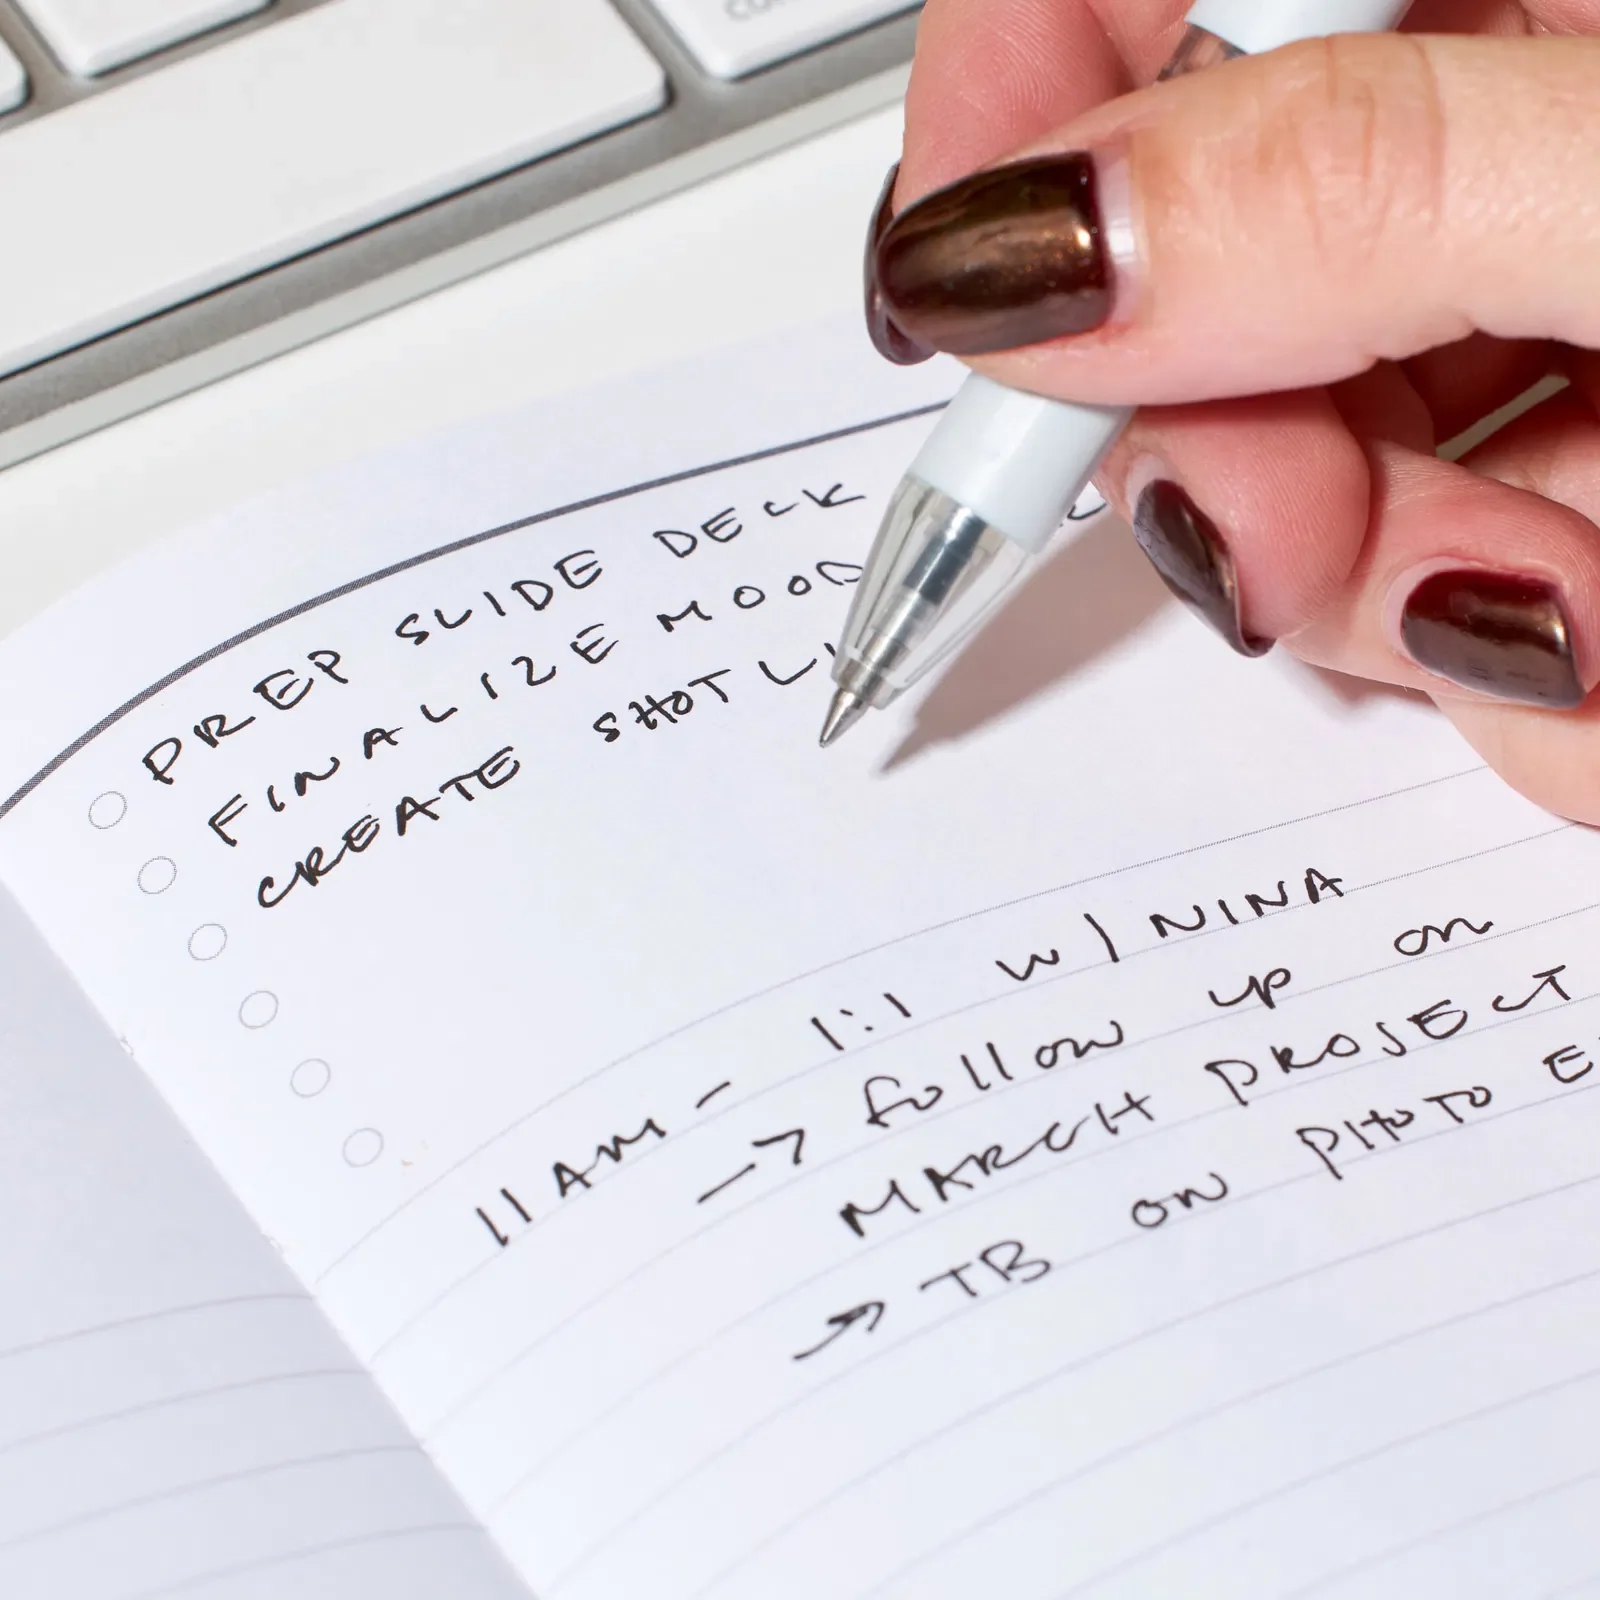 PREP SLIDE DECK
FINALIZE MOOD
CREATE SHOT LI
11 AM - 1:1 W/ NINA
-> follow up on
MARCH PROJECT
-> TB on PHOTO E